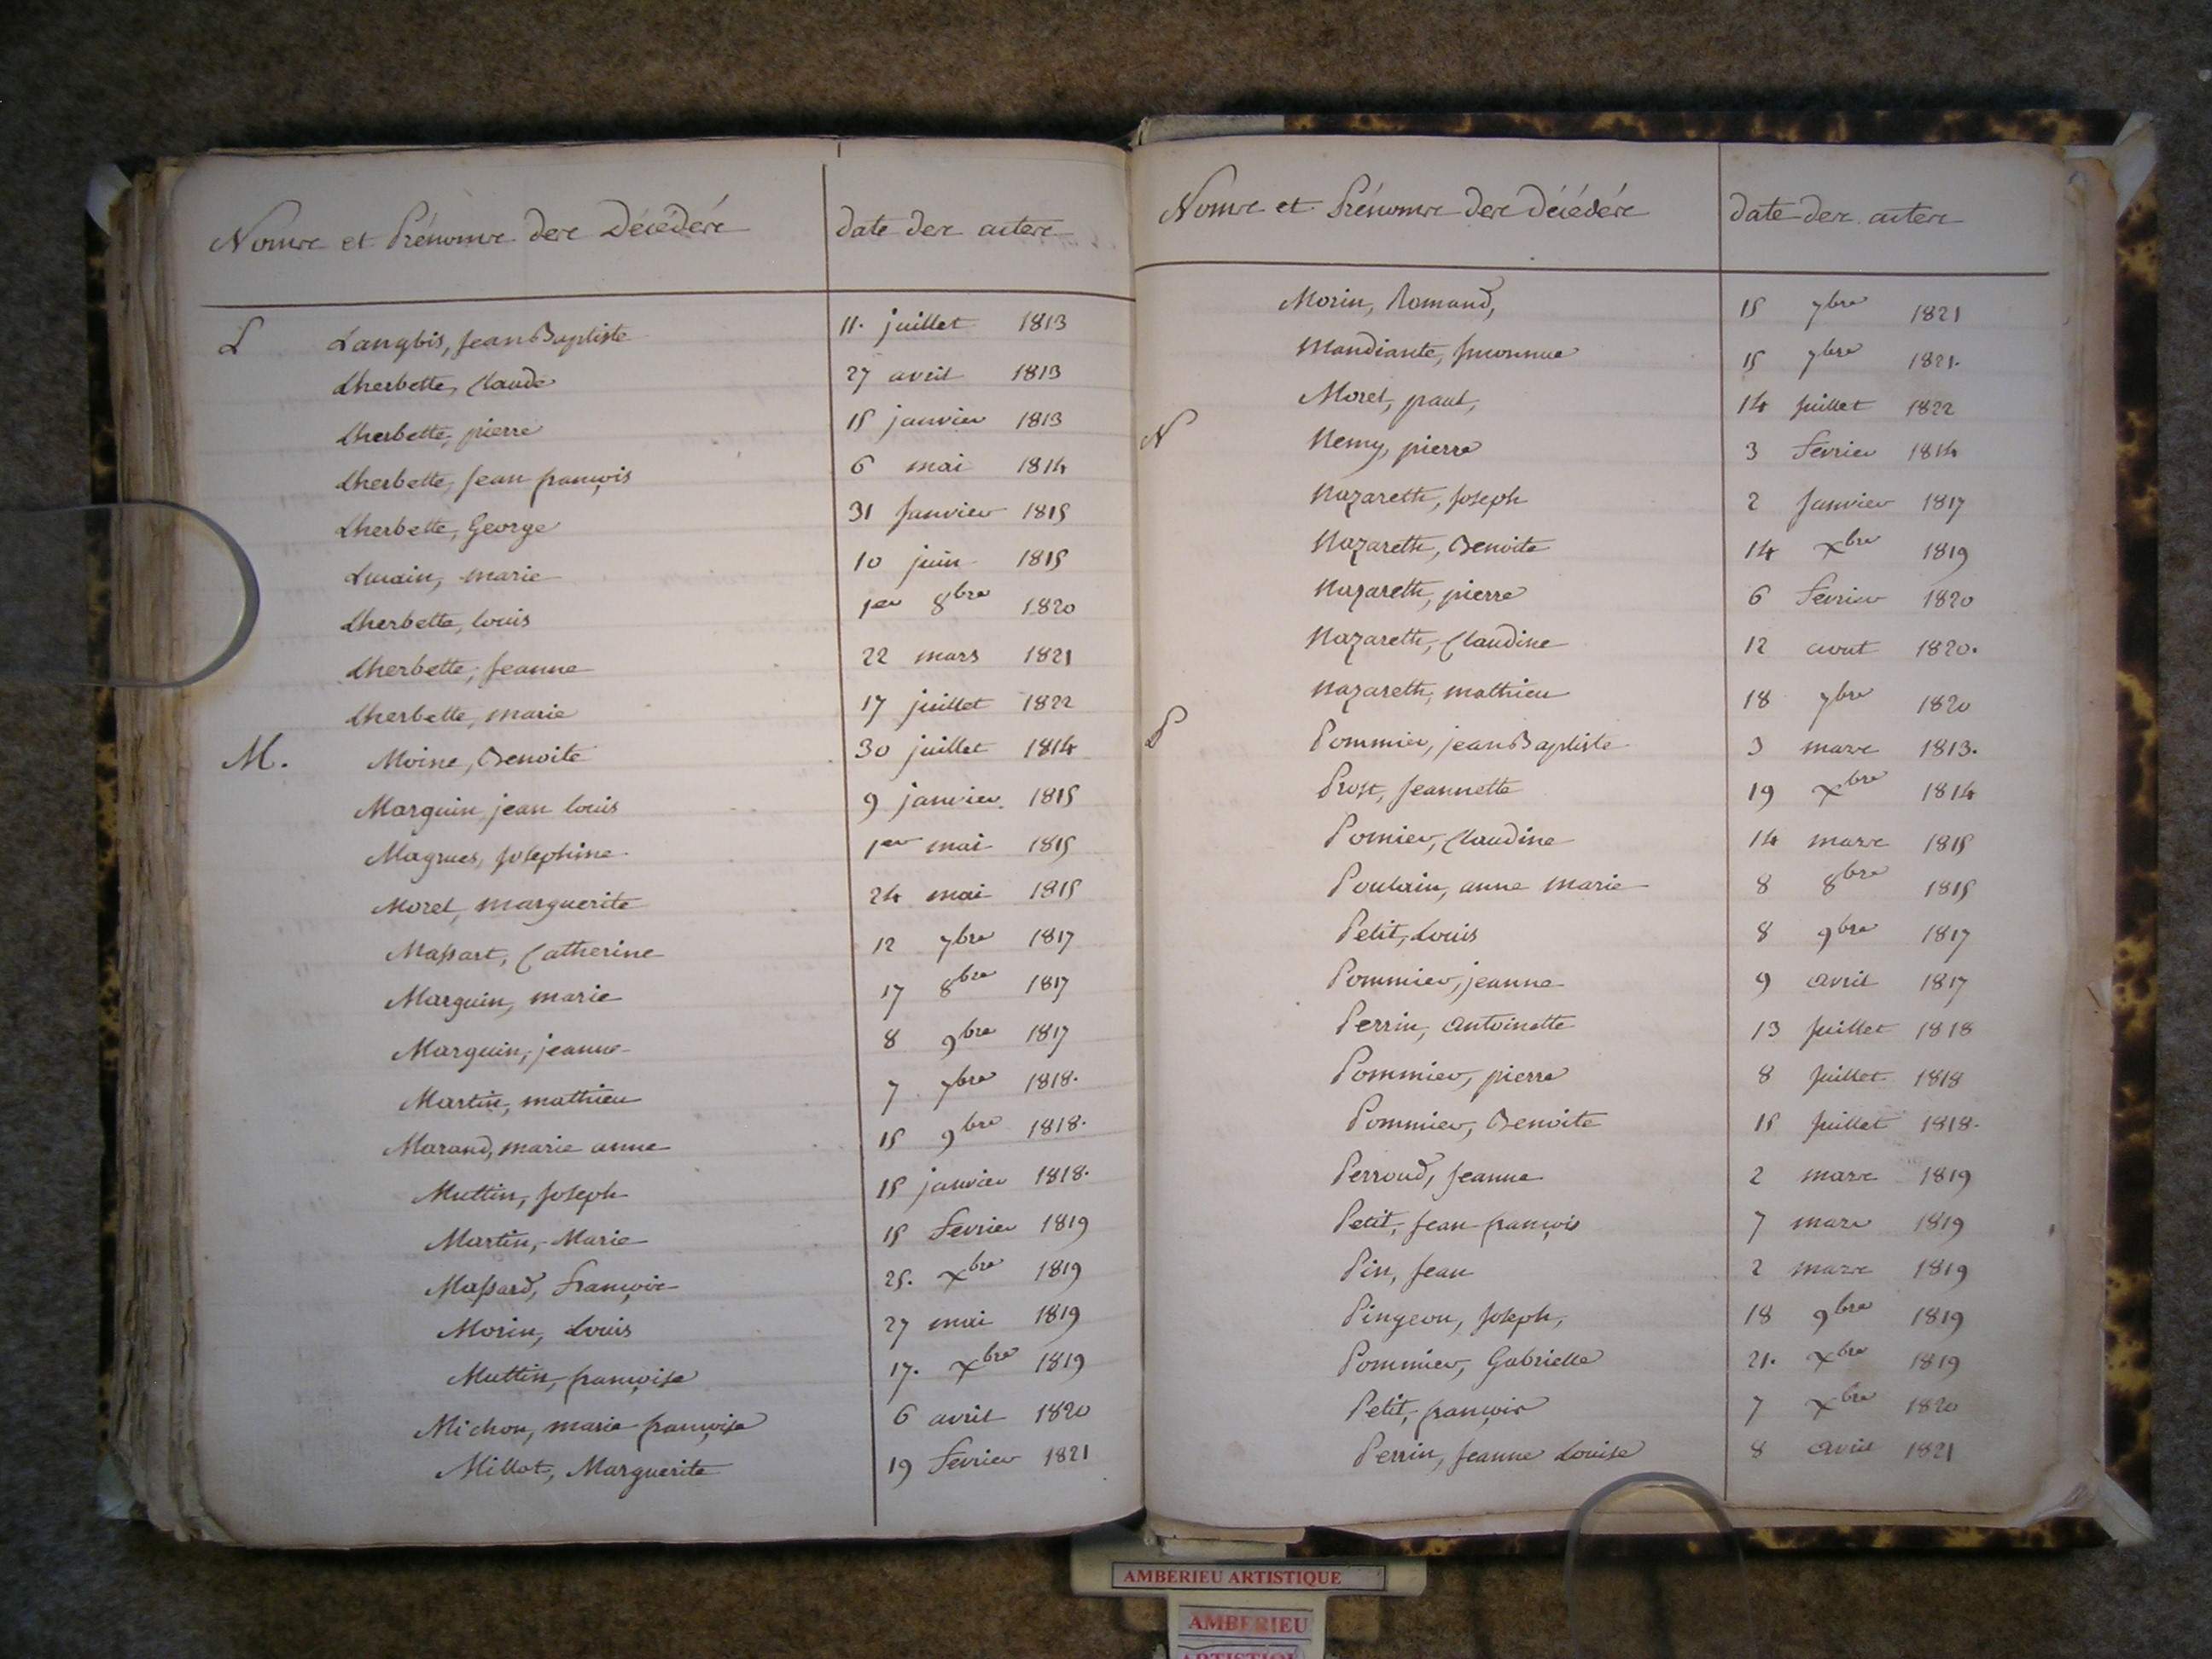 Noms et Prénoms des Décédés date des actes
L Langbis, Jean Baptiste 11. juillet 1813
Lherbette, Claude 27 avril 1813
Lherbette, pierre 15 janvier 1813
Lherbette, Jean françois 6 mai 1814
Lherbette, George 31 Janvier 1815
marie 10 juin 1815
Lherbette, louis 1er 8bre 1820
Lherbette, Jeanne 22 mars 1821
Lherbette, marie 17 juillet 1822
M. Moine, Benoite 30 juillet 1814
Marguin, jean louis 9 janvier 1815
Josephine 1er mai 1815
Morel, marguerite 24 mai 1815
Massart, Catherine 12 7bre 1817
Marguin, marie 17 8bre 1817
Marguin, jeanne 8 9bre 1817
Martin, mathieu 7 7bre 1818.
Marand, marie anne 15 9bre 1818.
Muttin, Joseph 15 janvier 1818.
Martin, Marie 15 Fevrier 1819
Massard, François 25. Xbre 1819
Morin, Louis 27 mai 1819
Muttin, françoise 17. Xbre 1819
Michon, marie françoise 6 avril 1820
Millot, Marguerite 19 Fevrier 1821
Noms et Prénoms des Décédés date des actes
Morin, Romand, 15 7bre 1821
Mandiante, Inconnue 15 7bre 1821.
Morel, paul, 14 Juillet 1822
N Nemy, pierre 3 Fevrier 1814
Nazareth, Joseph 2 Janvier 1817
Nazareth, Benoite 14 Xbre 1819
Nazareth, pierre 6 Fevrier 1820
Nazareth, Claudine 12 aout 1820.
Nazareth, mathieu 18 7bre 1820
P Pommier, jean Baptiste 3 mars 1813.
Prost, Jeannette 19 Xbre 1814
Pomier, Claudine 14 mars 1815
Poulain, anne marie 8 8bre 1815
Petit, Louis 8 9bre 1817
Pommier, jeanne 9 avril 1817
Perrin, antoinette 13 Juillet 1818
Pommier, pierre 8 Juillet 1818
Pommier, Benoite 15 Juillet 1818.
Perroud, Jeanne 2 mars 1819
Petit, Jean françois 7 mars 1819
Pin, Jean 2 mars 1819
Pingeon, Joseph, 18 9bre 1819
Pommier, Gabrielle 21. Xbre 1819
Petit, françois 7 Xbre 1820
Perrin, Jeanne Louise 8 avril 1821
AMBERIEU ARTISTIQUE
AMBERIEU
ARTISTIQUE